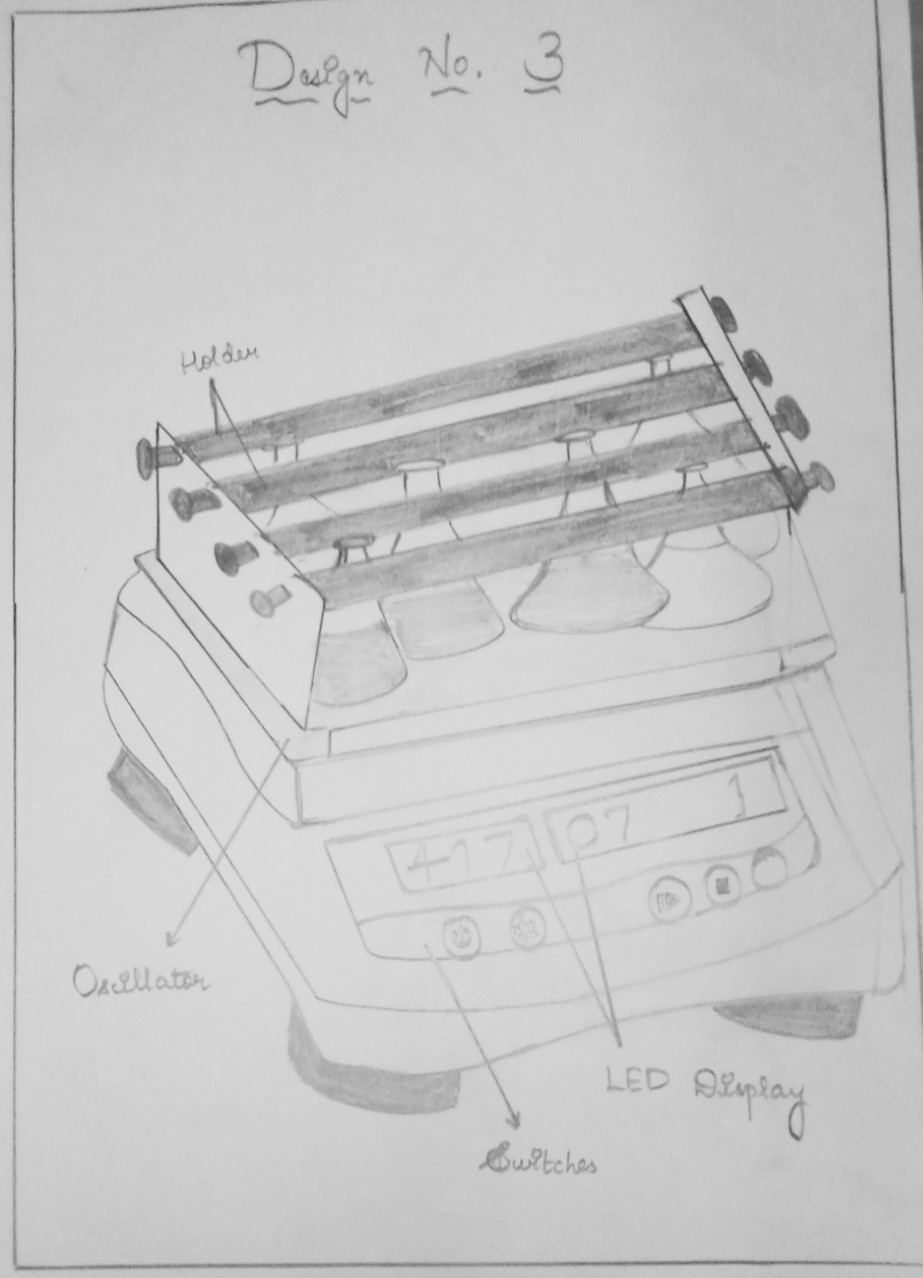 Design No. 3
Holder
417 07 1
Oscillator
LED Display
Switches